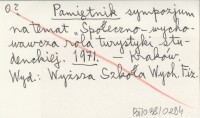 0.2
Pamiętnik sympozjum
na temat „Społeczno-wycho-
wawcza rola turystyki stu-
denckiej. 1971. — Kraków.
Wyd.: Wyższa Szkoła Wych. Fiz.